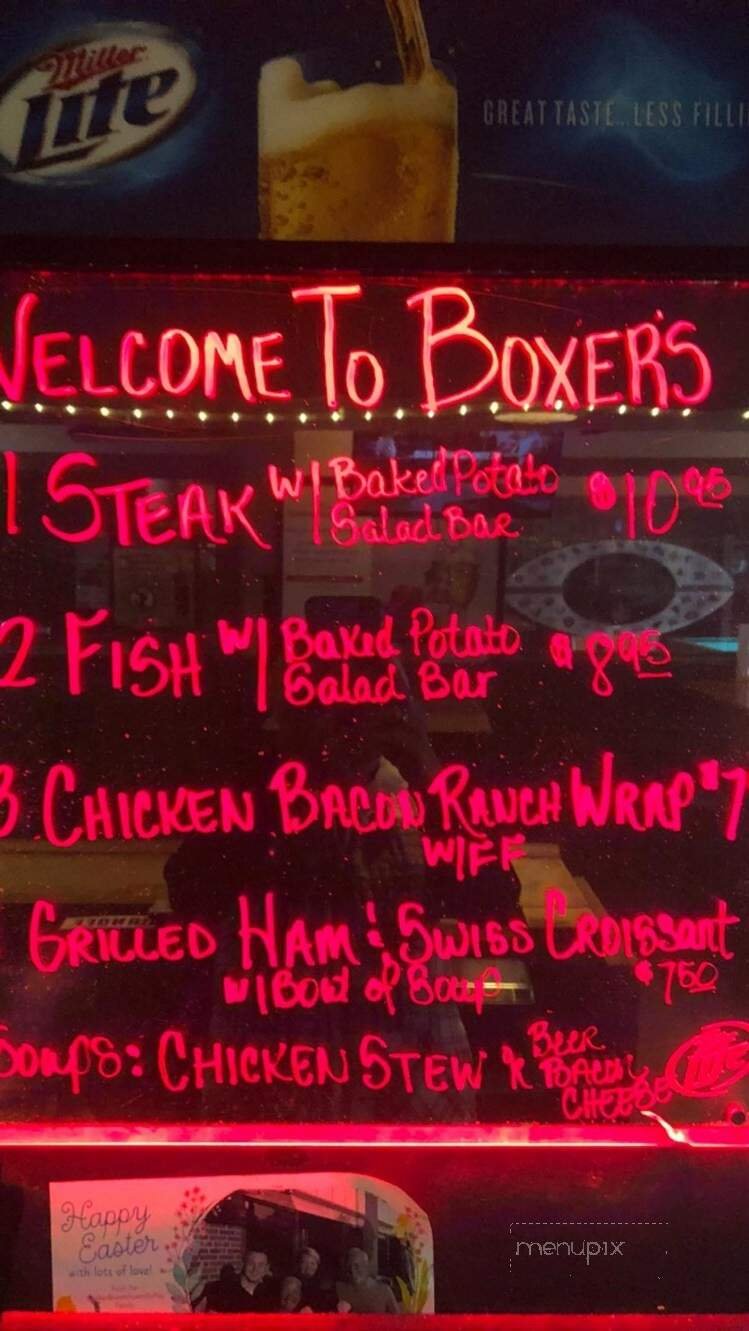 Miller
Lite
GREAT TASTE...LESS FILLI
WELCOME TO BOXER'S
1 STEAK W/ Baked Potato $10 95
Salad Bar
2 FISH W/ Baked Potato $8 95
Salad Bar
3 CHICKEN BACON RANCH WRAP $7
W/FF
GRILLED HAM & SWISS CROISSANT
W/ Bowl of Soup $7 50
Soups: CHICKEN STEW & BEER
BACON
CHEESE
Lite
Happy
Easter
with lots of love!
menupix